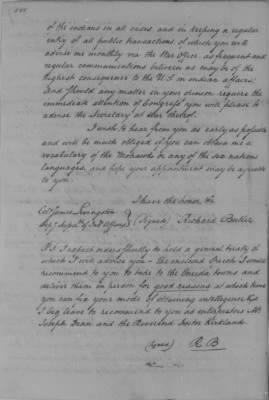 of the indians in all cases, and in keeping a regular
entry of all public transactions of which you will
advise me monthly via the War office, as frequent and
regular communications between us may be of the
highest consequence to the U.S. in indian affairs;
and should any matter in your opinion require the
immediate attention of Congress you will please to
advise the Secretary at War thereof.
I wish to hear from you as early as possible
and will be much obliged if you can obtain me a
vocabulary of the Mohawk or any of the six nations
languages, and hope your appointment may be agreeable
to you.
I have the honor, &c
Col. James Livingston
(signed) Richard Butler
P.S. I expect orders shortly to hold a general treaty of
which I will advise you - the enclosed Speech I would
recommend to you to take to the Oneida towns and
deliver them in person for good reasons at which time
you can fix your mode of obtaining intelligence &c
I beg leave to recommend to you as interpreters Mr.
Joseph Dean and the Reverend Doctor Kirkland.
(signed) R. B.